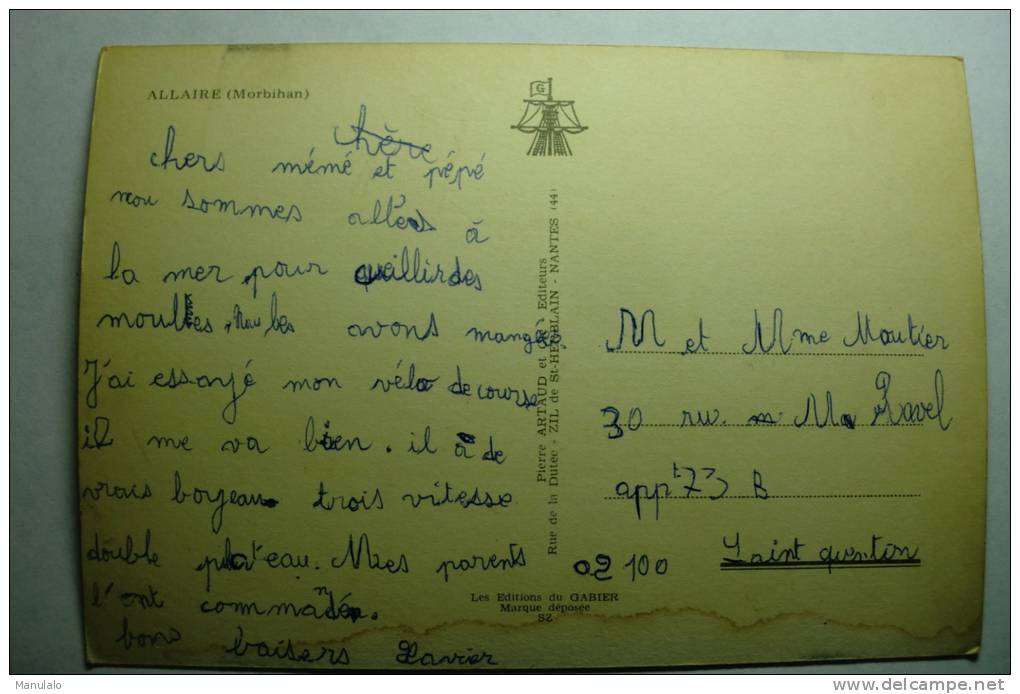 ALLAIRE (Morbihan)
G
chère
chers mémé et pépé
nou sommes allés à
la mer, pour queillir des
moulles, Nou les avons mangés.
J'ai essayé mon vélo de course
il me va bien. il a de
vrais boyeau trois vitesse
double plateau. Mes parents
l'ont commandé.
bons baisers Xavier
Pierre ARTAUD et Cie Editeurs
Rue de la Dutée - ZIL de St-HERBLAIN - NANTES (44)
M et Mme Moutier
30 rue M Ravel
appt 73 B
02100 Saint quentin
Les Editions du GABIER
Marque déposée
SZ
Manulalo
delcampe.net